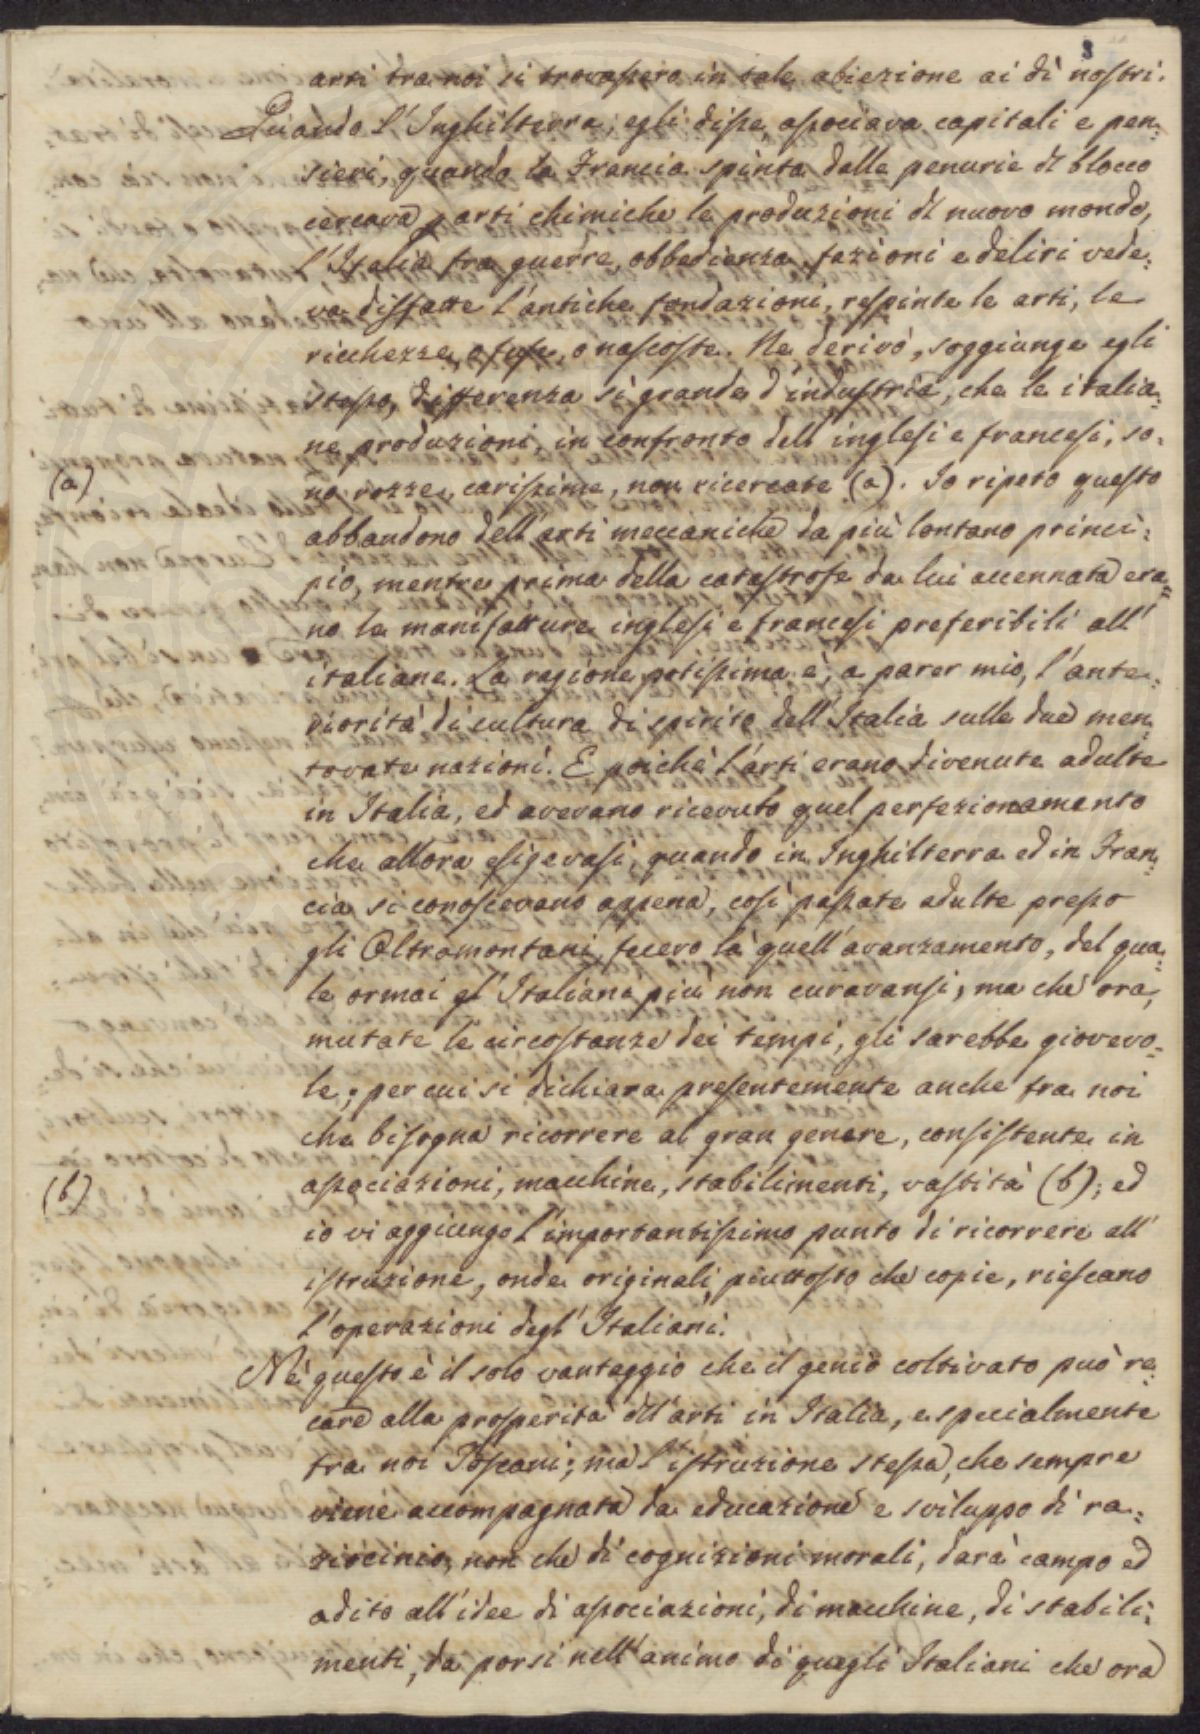 8
arti tra noi si trovassero in tale abiezione ai dì nostri.
Quando l'Inghilterra, egli disse, associava capitali e pen:
sieri, quando la Francia spinta dalle penurie dl blocco
cercava p arti chimiche le produzioni dl nuovo mondo,
l'Italia fra guerre, obbedienza, fazioni e deliri vede:
va disfatte l'antiche fondazioni, respinte le arti, le
ricchezze, o fuse, o nascoste. Ne derivò, soggiunge egli
stesso, differenza sì grande d'industria, che le italia:
ne produzioni, in confronto dell inglesi e francesi, so:
no rozze, carissime, non ricercate (a). Io ripeto questo
(a)
abbandono dell'arti meccaniche da più lontano princi:
pio, mentre prima della catastrofe da lui accennata era:
no le manifatture inglesi e francesi preferibili all'
italiane. La ragione potissima è, a parer mio, l'ante:
riorità di cultura di spirito dell'Italia sulle due men:
tovate nazioni. E poichè l'arti erano divenute adulte
in Italia, ed avevano ricevuto quel perfezionamento
che allora esigevasi, quando in Inghilterra ed in Fran:
cia si conoscevano appena, così passate adulte presso
gli Oltramontani, fecero là quell'avanzamento, del qua:
le ormai gl'Italiani più non curavansi, ma che ora,
mutate le circostanze dei tempi, gli sarebbe giovevo:
le; per cui si dichiara presentemente anche fra noi
che bisogna ricorrere al gran genere, consistente in
associazioni, macchine, stabilimenti, vastità (b); ed
(b)
io vi aggiungo l'importantissimo punto di ricorrere all'
istruzione, onde originali, piuttosto che copie, riescano
l'operazioni degl'Italiani.
Nè questo è il solo vantaggio che il genio coltivato può re:
care alla prosperità dll'arti in Italia, e specialmente
tra noi Toscani; ma l'istruzione stessa, che sempre
viene accompagnata da educazione e sviluppo di ra:
ziocinio, non che di cognizioni morali, darà campo ed
adito all'idee di associazioni, di macchine, di stabili:
menti, da porsi nell'animo di quegli Italiani che ora